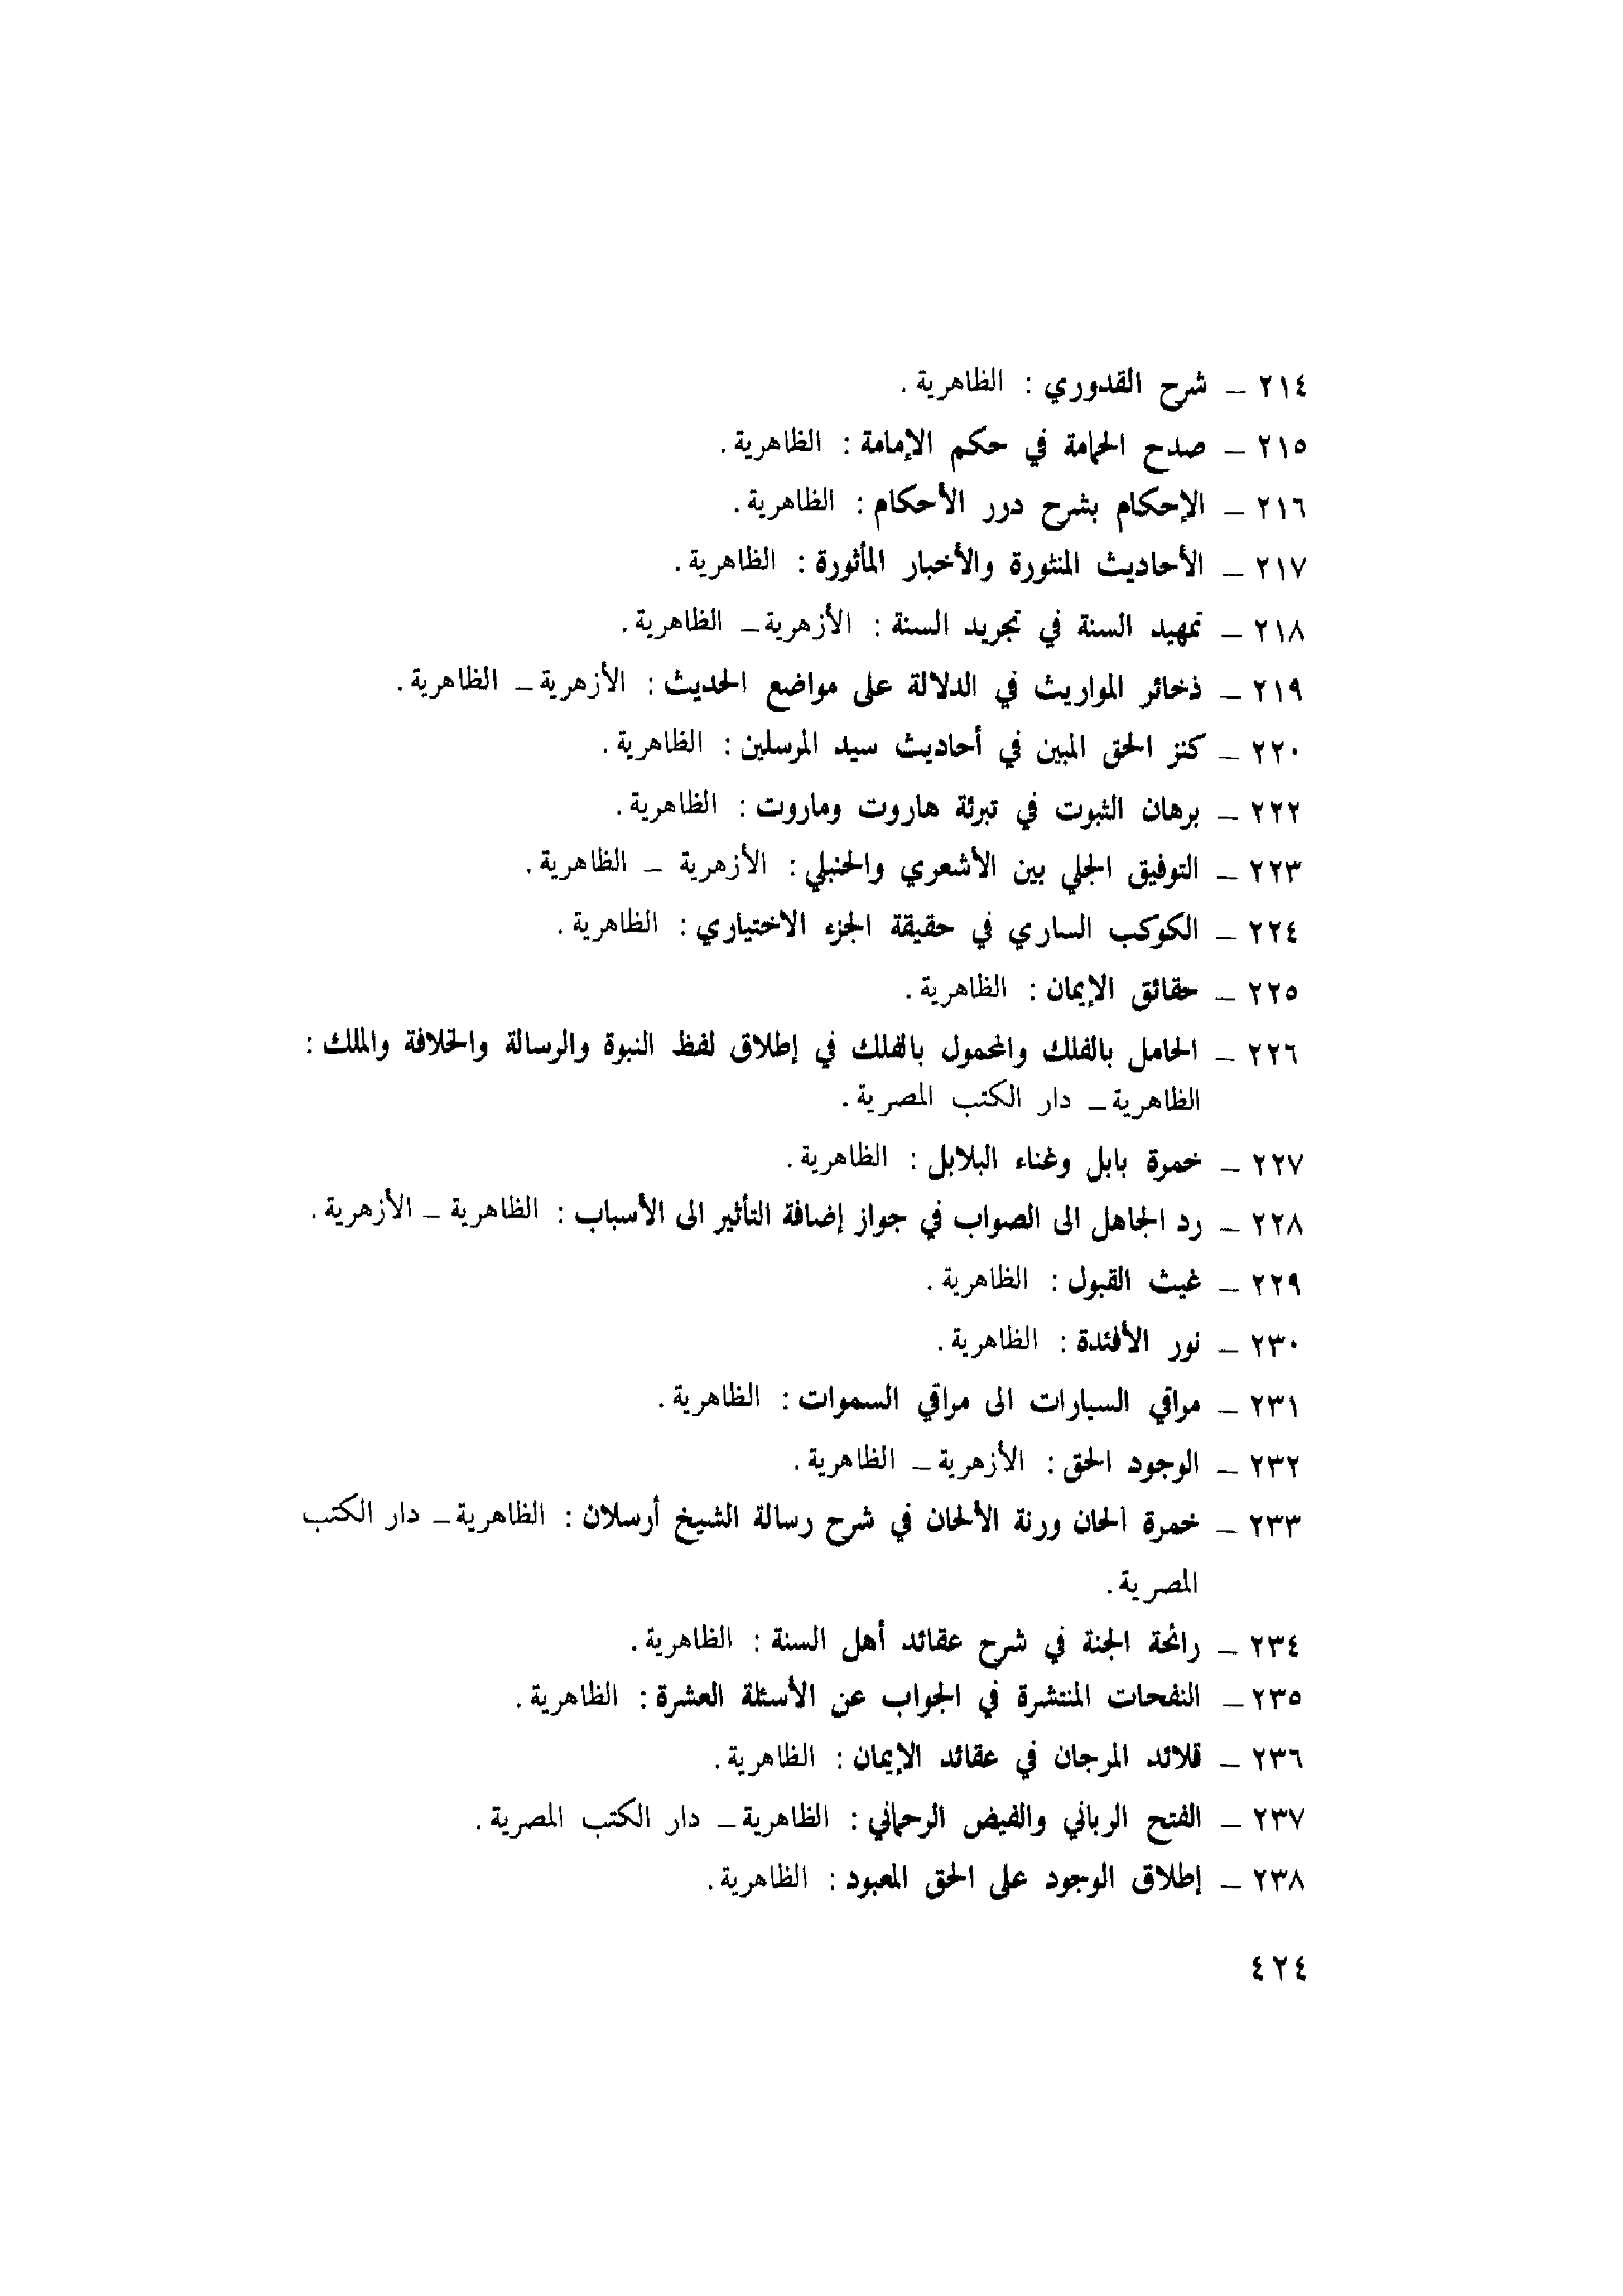 ٢١٤ ــ شرح القدوري : الظاهرية .
٢١٥ ــ صدح الحمامة في حكم الإمامة : الظاهرية .
٢١٦ ــ الإحكام بشرح درر الأحكام : الظاهرية .
٢١٧ ــ الأحاديث المنثورة والأخبار المأثورة : الظاهرية .
٢١٨ ــ تمهيد السنة في تجريد السنة : الأزهرية ــ الظاهرية .
٢١٩ ــ ذخائر المواريث في الدلالة على مواضع الحديث : الأزهرية ــ الظاهرية .
٢٢٠ ــ كنز الحق المبين في أحاديث سيد المرسلين : الظاهرية .
٢٢٢ ــ برهان الثبوت في تبرئة هاروت وماروت : الظاهرية .
٢٢٣ ــ التوفيق الجلي بين الأشعري والحنبلي : الأزهرية ــ الظاهرية .
٢٢٤ ــ الكوكب الساري في حقيقة الجزء الاختياري : الظاهرية .
٢٢٥ ــ حقائق الإيمان : الظاهرية .
٢٢٦ ــ الحامل بالفلك والمحمول بالفلك في إطلاق لفظ النبوة والرسالة والخلافة والملك :
الظاهرية ــ دار الكتب المصرية .
٢٢٧ ــ خمرة بابل وغناء البلابل : الظاهرية .
٢٢٨ ــ رد الجاهل الى الصواب في جواز إضافة التأثير الى الأسباب : الظاهرية ــ الأزهرية .
٢٢٩ ــ غيث القبول : الظاهرية .
٢٣٠ ــ نور الأفئدة : الظاهرية .
٢٣١ ــ مراقي السيارات الى مراقي السموات : الظاهرية .
٢٣٢ ــ الوجود الحق : الأزهرية ــ الظاهرية .
٢٣٣ ــ خمرة الحان ورنة الألحان في شرح رسالة الشيخ أرسلان : الظاهرية ــ دار الكتب
المصرية .
٢٣٤ ــ رائحة الجنة في شرح عقائد أهل السنة : الظاهرية .
٢٣٥ ــ النفحات المنتشرة في الجواب عن الأسئلة العشرة : الظاهرية .
٢٣٦ ــ قلائد المرجان في عقائد الإيمان : الظاهرية .
٢٣٧ ــ الفتح الرباني والفيض الرحماني : الظاهرية ــ دار الكتب المصرية .
٢٣٨ ــ إطلاق الوجود على الحق المعبود : الظاهرية .
٤٢٤